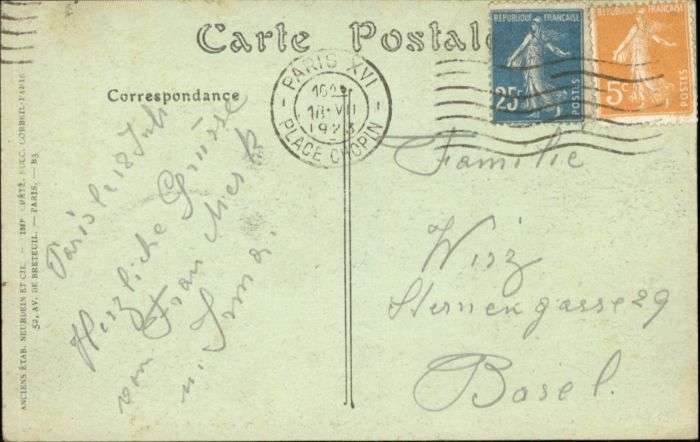 Carte Postale
Correspondance
PARIS XVI
18 VII
1923
PLACE CHOPIN
RÉPUBLIQUE FRANÇAISE
25c
POSTES
RÉPUBLIQUE FRANÇAISE
5c
POSTES
Paris le 18 Juli
Herzliche Grüsse
von Frau
u. Irma.
Familie
Wirz
Sternengasse 29
Basel.
ANCIENS ÉTAB. NEURDEIN ET CIE. — IMP. CRÉTÉ, SUCC. CORBEIL-PARIS
52, AV. DE BRETEUIL. — PARIS. — B3